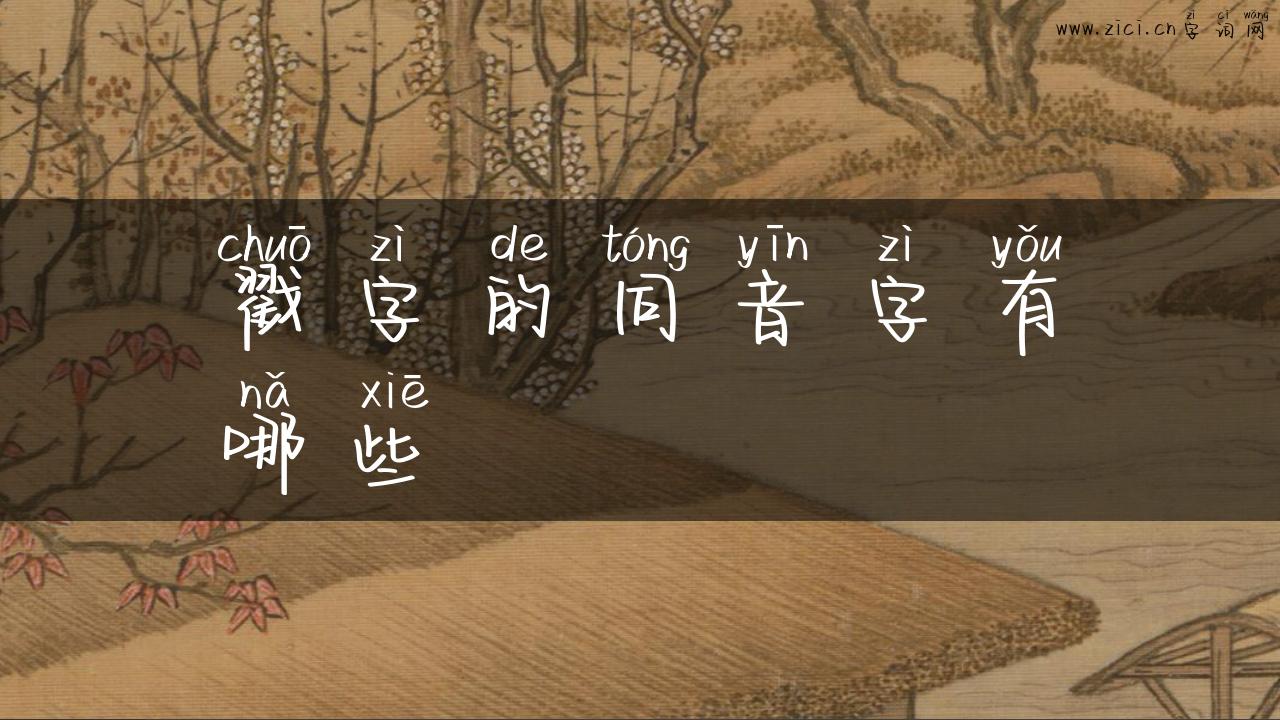 zì cí wǎng
www.zici.cn字词网
chuō zì de tóng yīn zì yǒu
戳字的同音字有
nǎ xiē
哪些